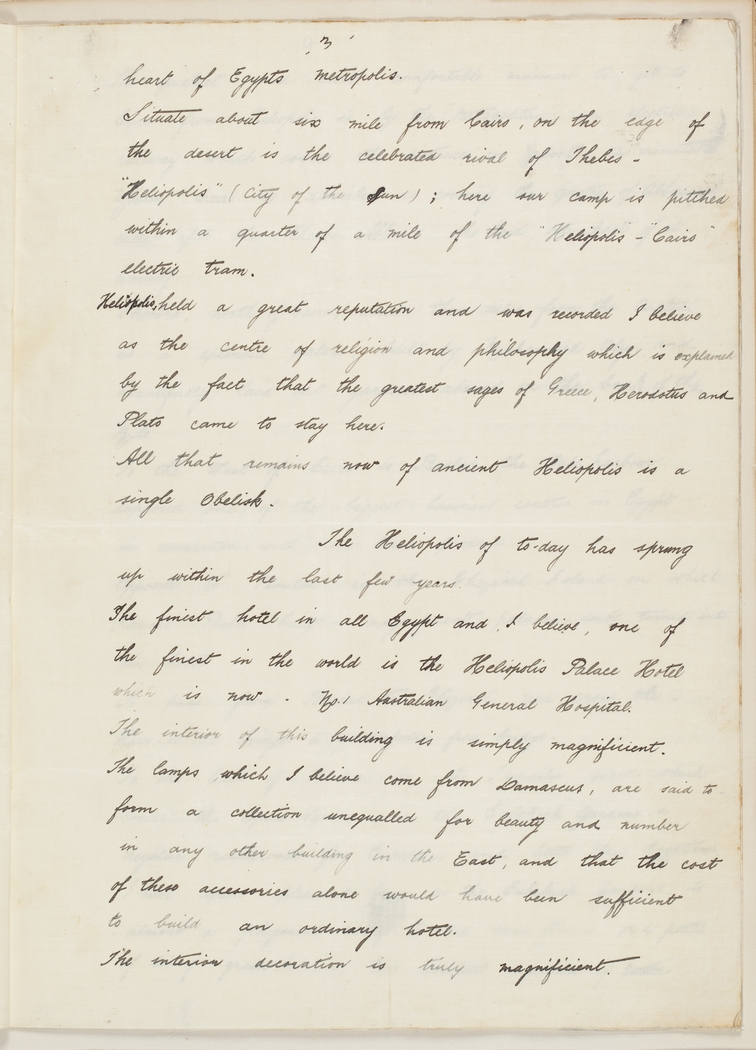 3
heart of Egypts metropolis.
Situate about six mile from Cairo, on the edge of
the desert is the celebrated rival of Thebes -
"Heliopolis" (City of the Sun); here our camp is pitched
within a quarter of a mile of the "Heliopolis - "Cairo"
electric tram.
Heliopolis, held a great reputation and was recorded I believe
as the centre of religion and philosophy which is explained
by the fact that the greatest sages of Greece, Herodotus and
Plato came to stay here.
All that remains now of ancient Heliopolis is a
single Obelisk.
The Heliopolis of to-day has sprung
up within the last few years.
The finest hotel in all Egypt and, I believe, one of
the finest in the world is the Heliopolis Palace Hotel
which is now - No. 1 Australian General Hospital.
The interior of this building is simply magnificient.
The lamps which I believe come from Damascus, are said to
form a collection unequalled for beauty and number
in any other building in the East, and that the cost
of these accessories alone would have been sufficient
to build an ordinary hotel.
The interior decoration is truly magnificient.